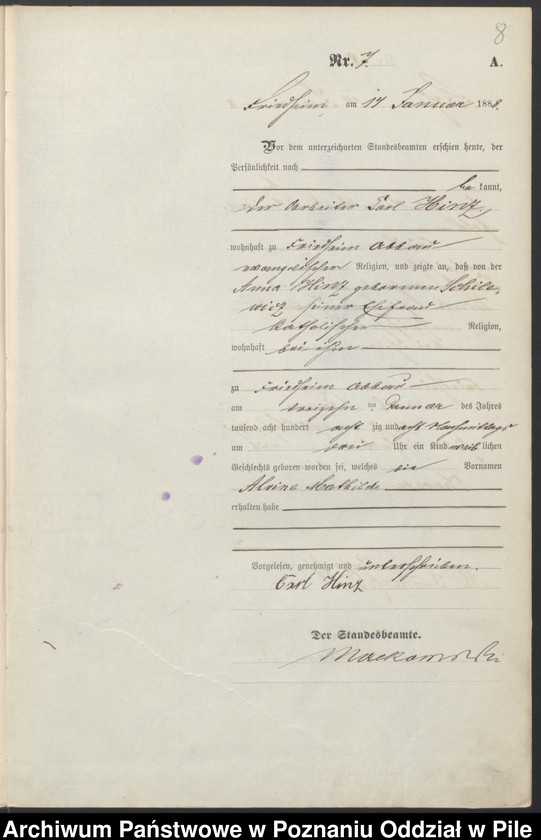 8
Nr. 7. A.
Friedheim, am 17 Januar 1888.
Vor dem unterzeichneten Standesbeamten erschien heute, der
Persönlichkeit nach
be kannt,
der Arbeiter Carl Hinz,
wohnhaft zu Friedheim Abbau
evangelischer Religion, und zeigte an, daß von der
Anna Hinz geborenen
seiner Ehefrau
katholischer Religion,
wohnhaft bei ihm
zu Friedheim Abbau
am dreizehn ten Januar des Jahres
tausend acht hundert acht zig und acht Nachmittags
um drei Uhr ein Kind weib lichen
Geschlechts geboren worden sei, welches die Vornamen
Alvina Mathilde
erhalten habe
Vorgelesen, genehmigt und unterschrieben.
Carl Hinz
Der Standesbeamte.
Mackowski
Archiwum Państwowe w Poznaniu Oddział w Pile